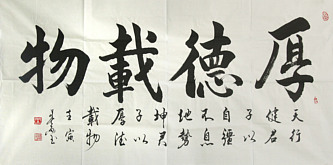 厚德載物
天行
健君
子以
自強
不息
地勢
坤君
子以
厚德
載物
壬寅